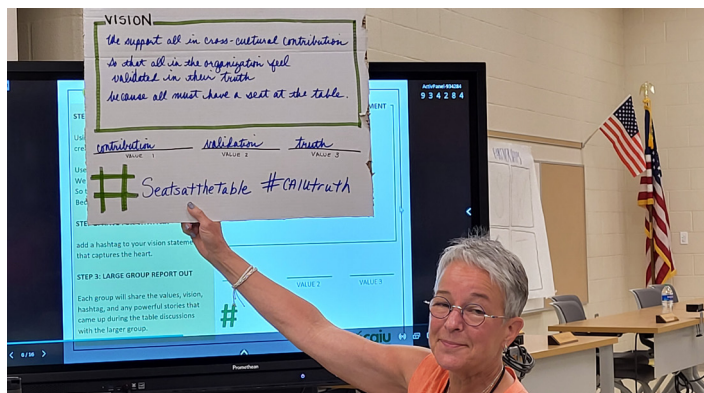 VISION
We support all in cross-cultural contribution
So that all in the organization feel
validated in their truth
because all must have a seat at the table.
contribution validation truth
VALUE 1 VALUE 2 VALUE 3
# Seatsatthetable #CAIUtruth
ActivPanel-934284
934284
STE
MENT
Usi
cre
Use
We
So t
Bec
add a hashtag to your vision stateme
that captures the heart.
STEP 3: LARGE GROUP REPORT OUT
Each group will share the values, vision,
hashtag, and any powerful stories that
came up during the table discussions
with the larger group.
VALUE 2 VALUE 3
#
caiu
6/16
Promethean